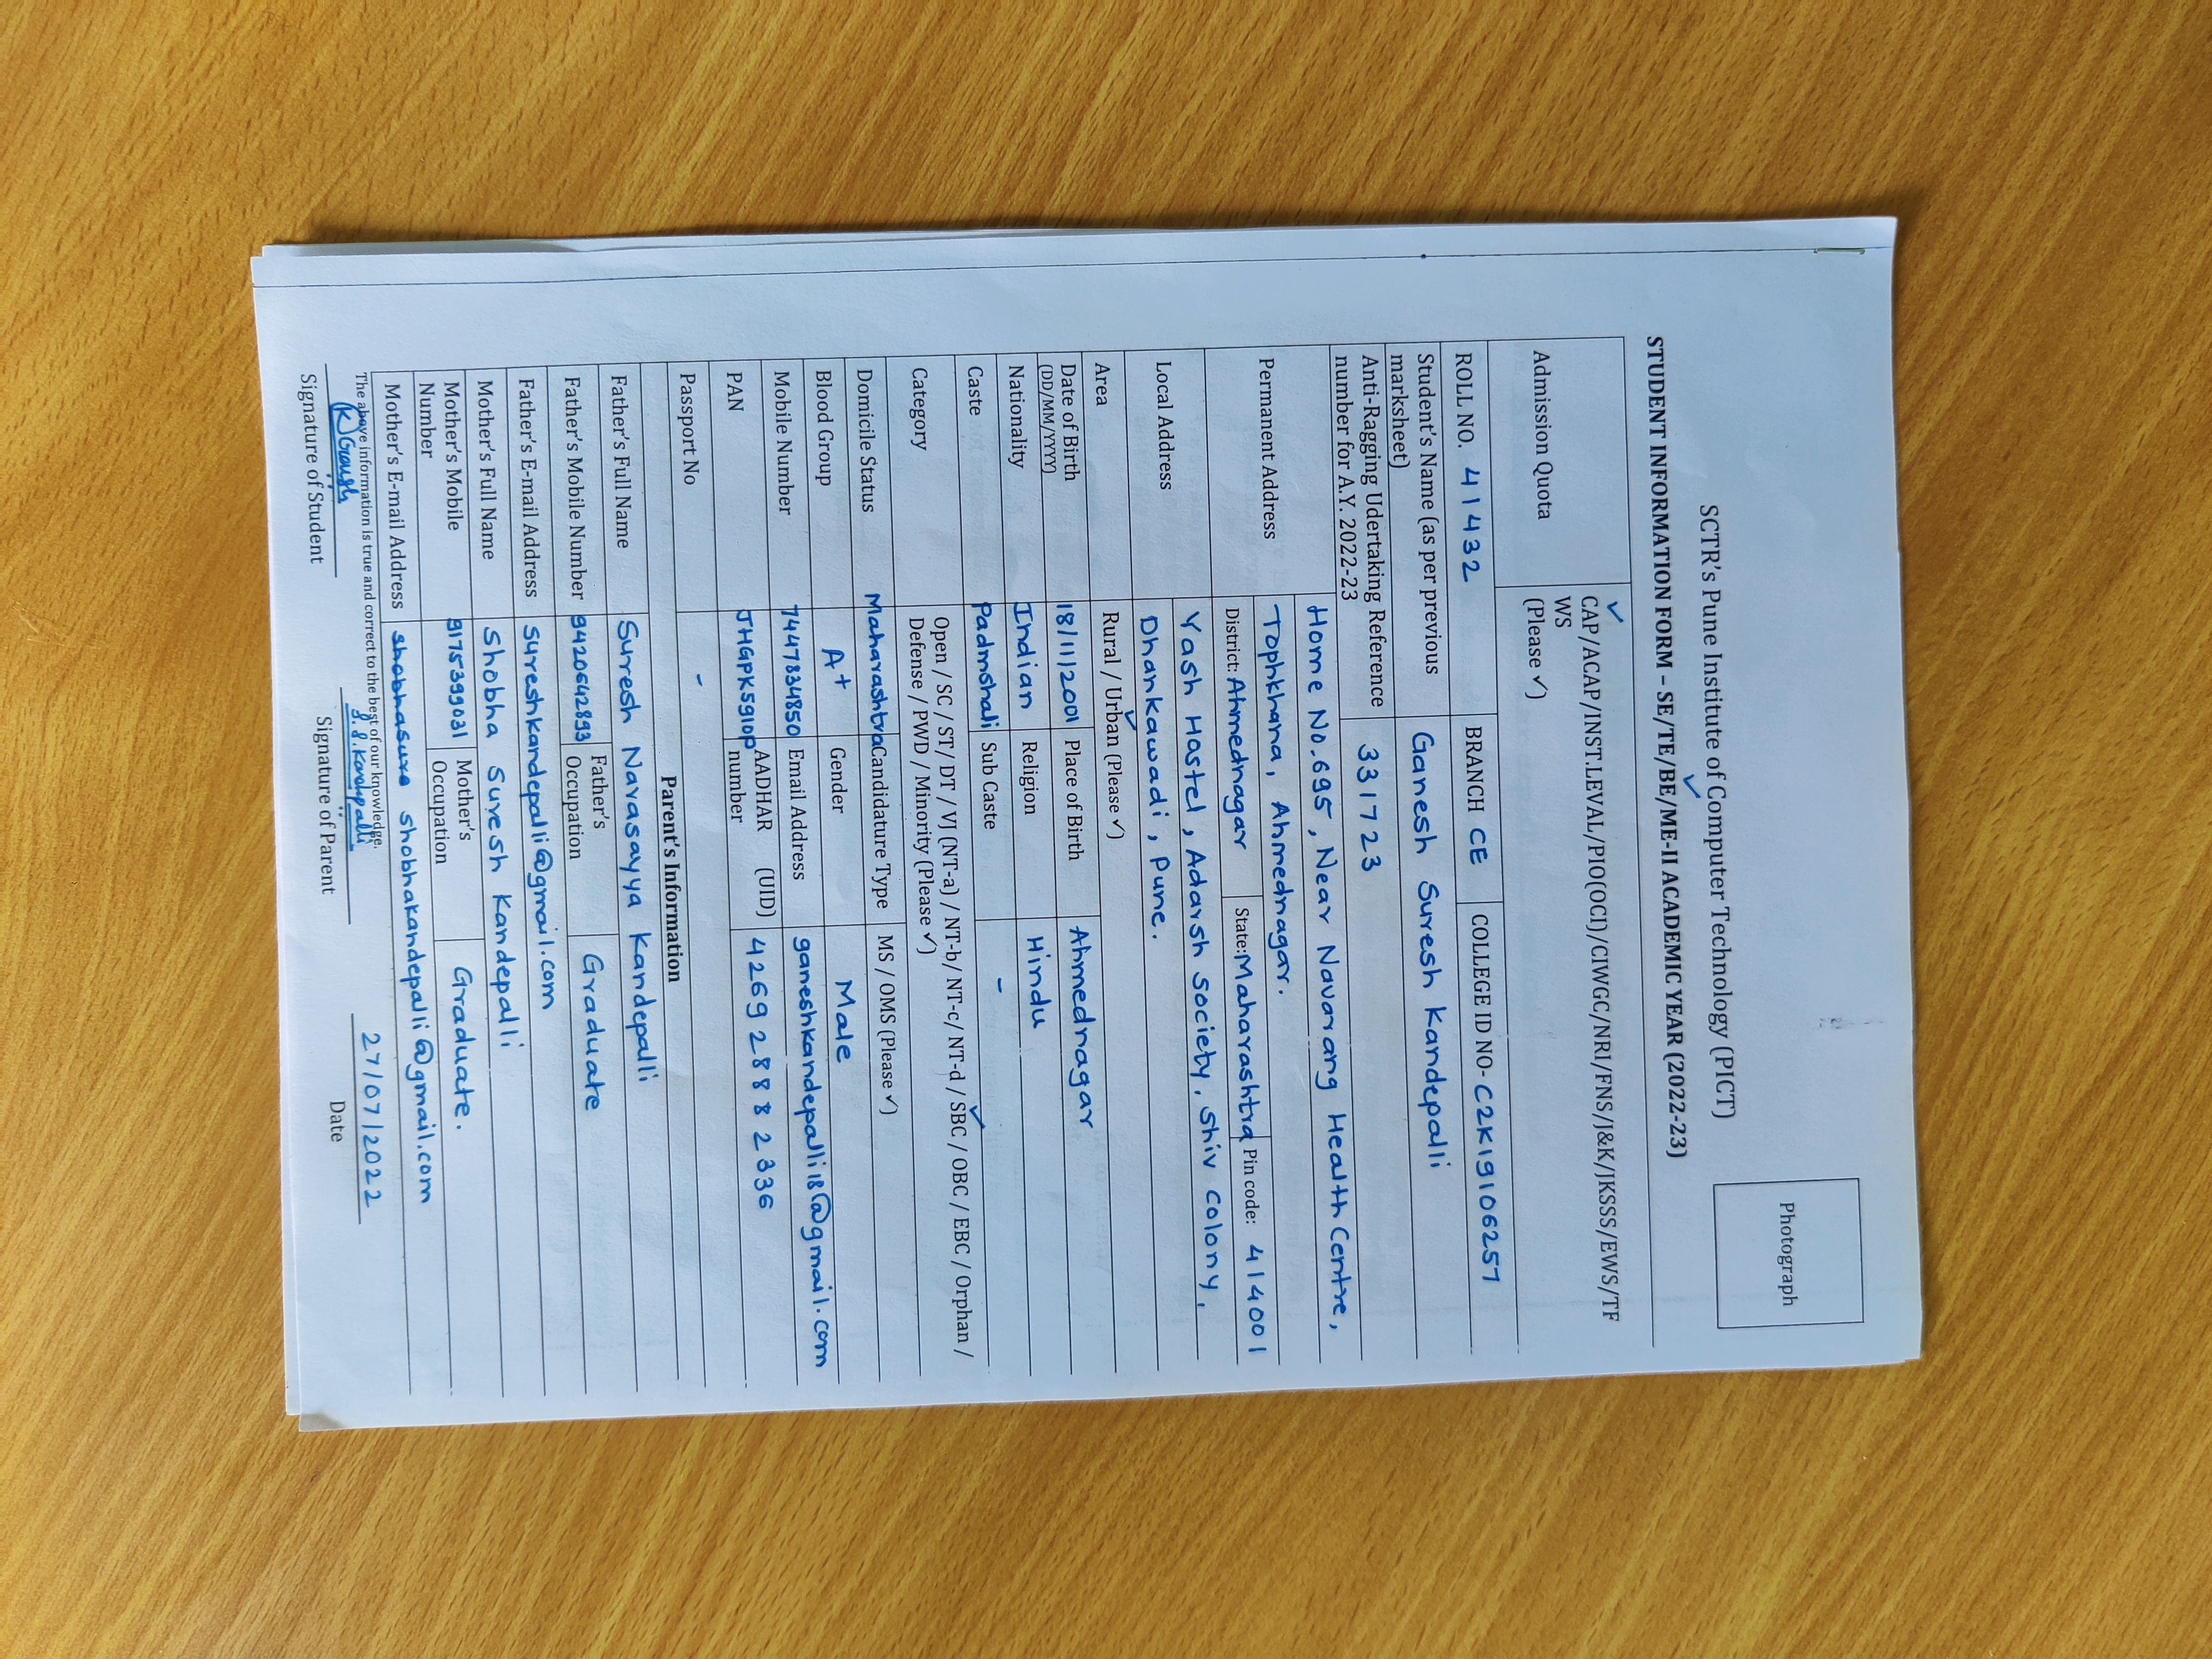 SCTR's Pune Institute of Computer Technology (PICT)
Photograph
STUDENT INFORMATION FORM – SE/TE/BE/ME-II ACADEMIC YEAR (2022-23)
Admission Quota
✓
CAP/ACAP/INST.LEVAL/PIO(OCI)/CIWGC/NRI/FNS/J&K/JKSSS/EWS/TF
WS
(Please ✓)
ROLL NO. 41432 BRANCH CE COLLEGE ID NO- C2K19106257
Student's Name (as per previous
marksheet) Ganesh Suresh Kandepalli
Anti-Ragging Udertaking Reference
number for A.Y. 2022-23 331723
Permanent Address
Home No.695, Near Navarang Health Centre,
Tophkhana, Ahmednagar.
District: Ahmednagar State: Maharashtra Pin code: 414001
Local Address
Yash Hostel, Adarsh Society, Shiv Colony,
Dhankawadi, Pune.
Area Rural / Urban (Please ✓)
Date of Birth
(DD/MM/YYYY) 18/11/2001 Place of Birth Ahmednagar
Nationality Indian Religion Hindu
Caste Padmshali Sub Caste -
Category
Open / SC / ST / DT / VJ (NT-a) / NT-b/ NT-c/ NT-d / SBC / OBC / EBC / Orphan /
Defense / PWD / Minority (Please ✓)
Domicile Status Maharashtra Candidature Type MS / OMS (Please ✓)
Blood Group A+ Gender Male
Mobile Number 7447834850 Email Address ganeshkandepalli18@gmail.com
PAN JHGPK5910P AADHAR (UID)
number 4269 2888 2336
Passport No -
Parent's Information
Father's Full Name Suresh Narasayya Kandepalli
Father's Mobile Number 9420642893 Father's
Occupation Graduate
Father's E-mail Address sureshkandepalli@gmail.com
Mother's Full Name Shobha Suresh Kandepalli
Mother's Mobile
Number 9175399031 Mother's
Occupation Graduate.
Mother's E-mail Address shobhasure shobhakandepalli@gmail.com
The above information is true and correct to the best of our knowledge.
S.S.Kandepalli 27/07/2022
Signature of Student Signature of Parent Date